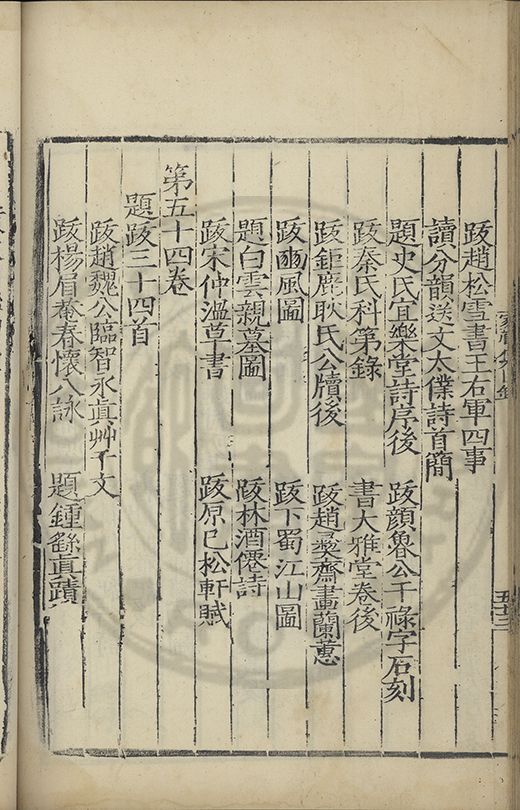 跋趙松雪書王右軍四事
讀分韻送文太僕詩首簡
題史氏宜樂堂詩序後 跋顏魯公干祿字石刻
跋秦氏科第錄 書大雅堂卷後
跋鉅鹿耿氏公牘後 跋趙彝齋畫蘭蕙
跋豳風圖 跋下蜀江山圖
題白雲親墓圖 跋林酒僊詩
跋宋仲溫草書 跋原巳松軒賦
第五十四卷
題跋三十四首
跋趙魏公臨智永眞艸千文
跋楊眉菴春懷八詠 題鍾繇眞蹟